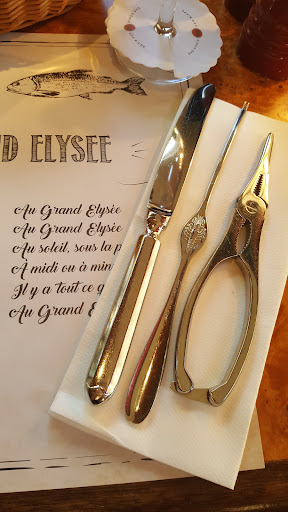 D ELYSEE
Au Grand Elysée
Au Grand Elysée
Au soleil, sous la p
À midi ou à min
Il y a tout ce q
Au Grand E